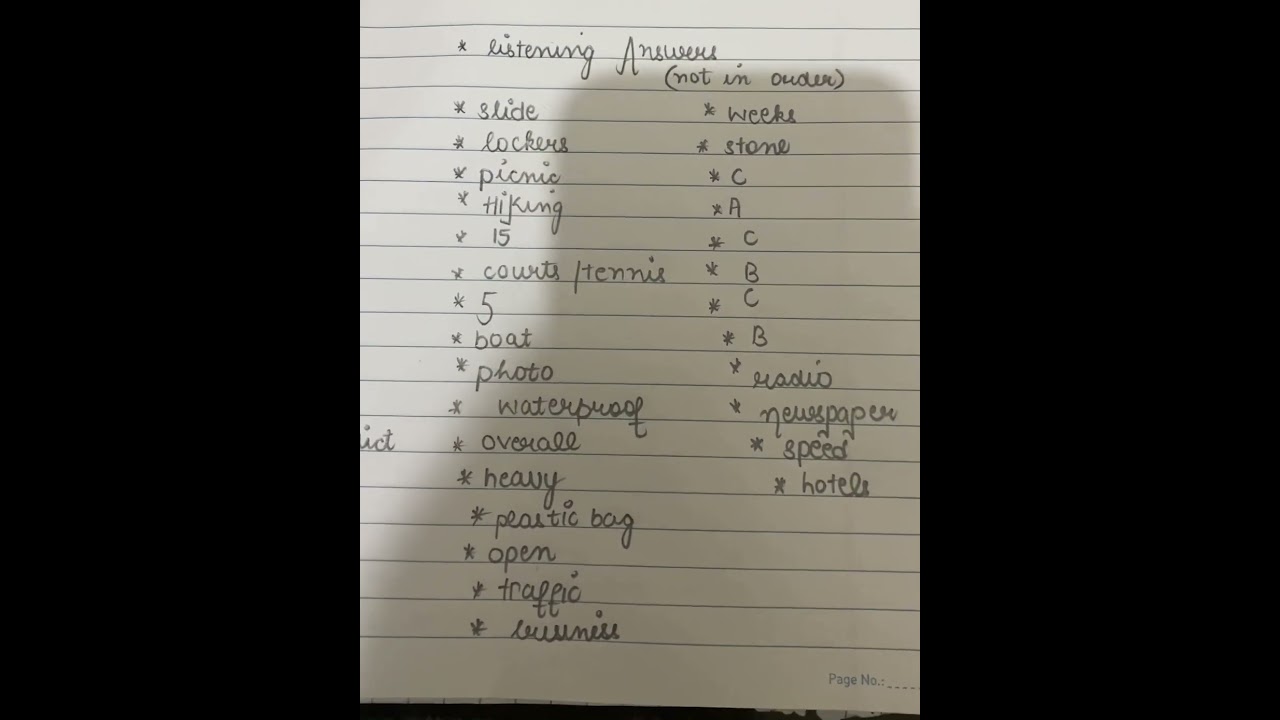 * listening Answers
(not in order)
* slide
* lockers
* picnic
* Hiking
* 15
* courts/tennis
* 5
* boat
* photo
* waterproof
* overall
* heavy
* plastic bag
* open
* traffic
* business
* weeks
* stone
* C
* A
* C
* B
* C
* B
* radio
* newspaper
* speed
* hotels
ict
Page No.: